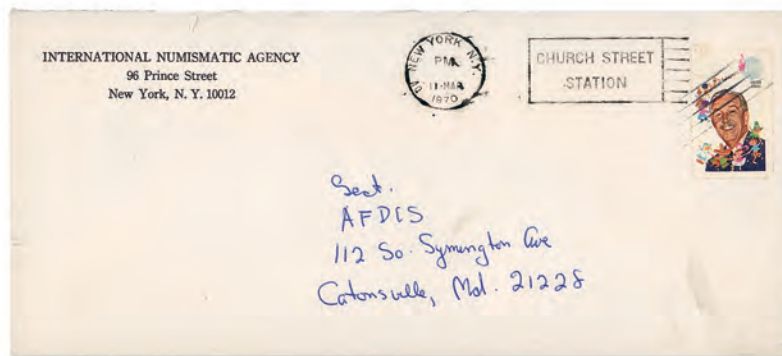 INTERNATIONAL NUMISMATIC AGENCY
96 Prince Street
New York, N. Y. 10012
NEW YORK N.Y.
PM
11 MAR
1970
CHURCH STREET
STATION
Sect.
AFDCS
112 So. Symington Ave
Catonsville, Md. 21228